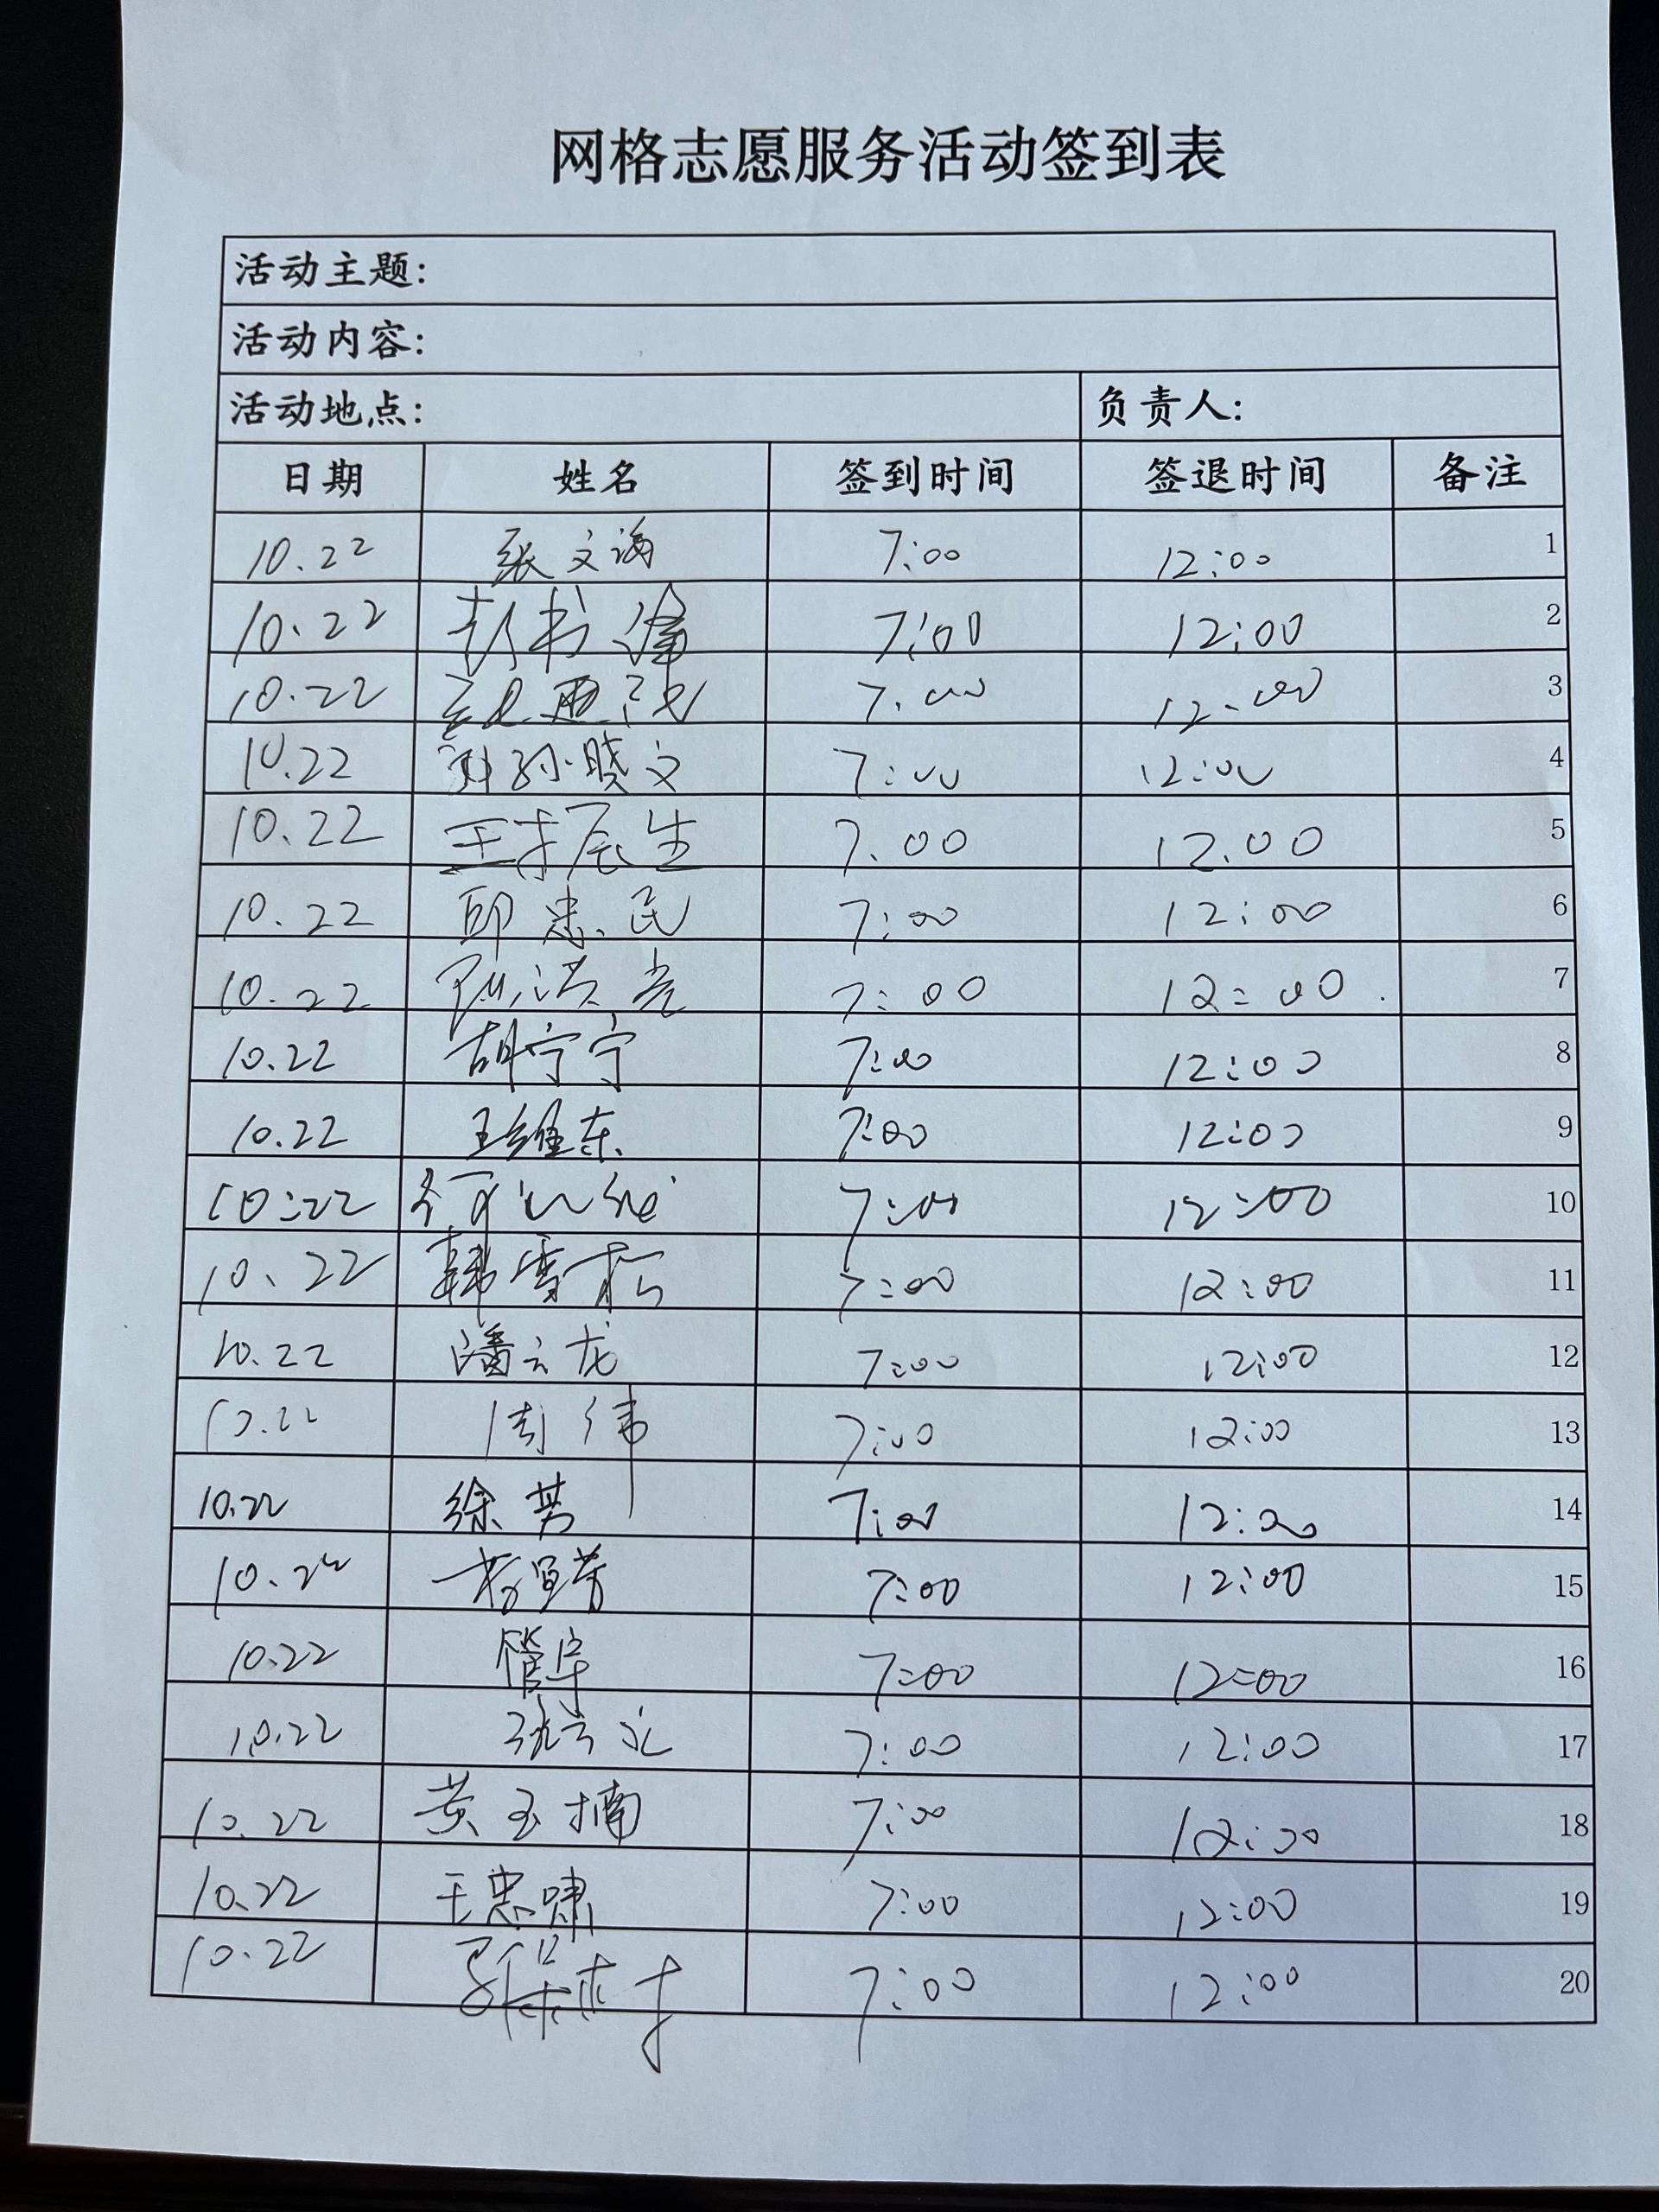 网格志愿服务活动签到表
活动主题:
活动内容:
活动地点: 负责人:
日期 姓名 签到时间 签退时间 备注
10.22 张文海 7:00 12:00 1
10.22 彭书 7:00 12:00 2
10.22 7.00 12.00 3
10.22 孙晓文 7:00 12:00 4
10.22 王才辰生 7.00 12.00 5
10.22 邱忠民 7:00 12:00 6
10.22 洪光 7:00 12:00 7
10.22 胡宁宁 7:00 12:00 8
10.22 王维东 7:00 12:00 9
10:22 7:00 12:00 10
10.22 韩雪松 7:00 12:00 11
10.22 潘云龙 7:00 12:00 12
10.22 周伟 7:00 12:00 13
10.22 徐芳 7:00 12:00 14
10.22 杨宜芳 7:00 12:00 15
10.22 管军 7:00 12:00 16
10.22 张云 7:00 12:00 17
10.22 黄玉楠 7:00 12:00 18
10.22 王忠啸 7:00 12:00 19
10.22 7:00 12:00 20